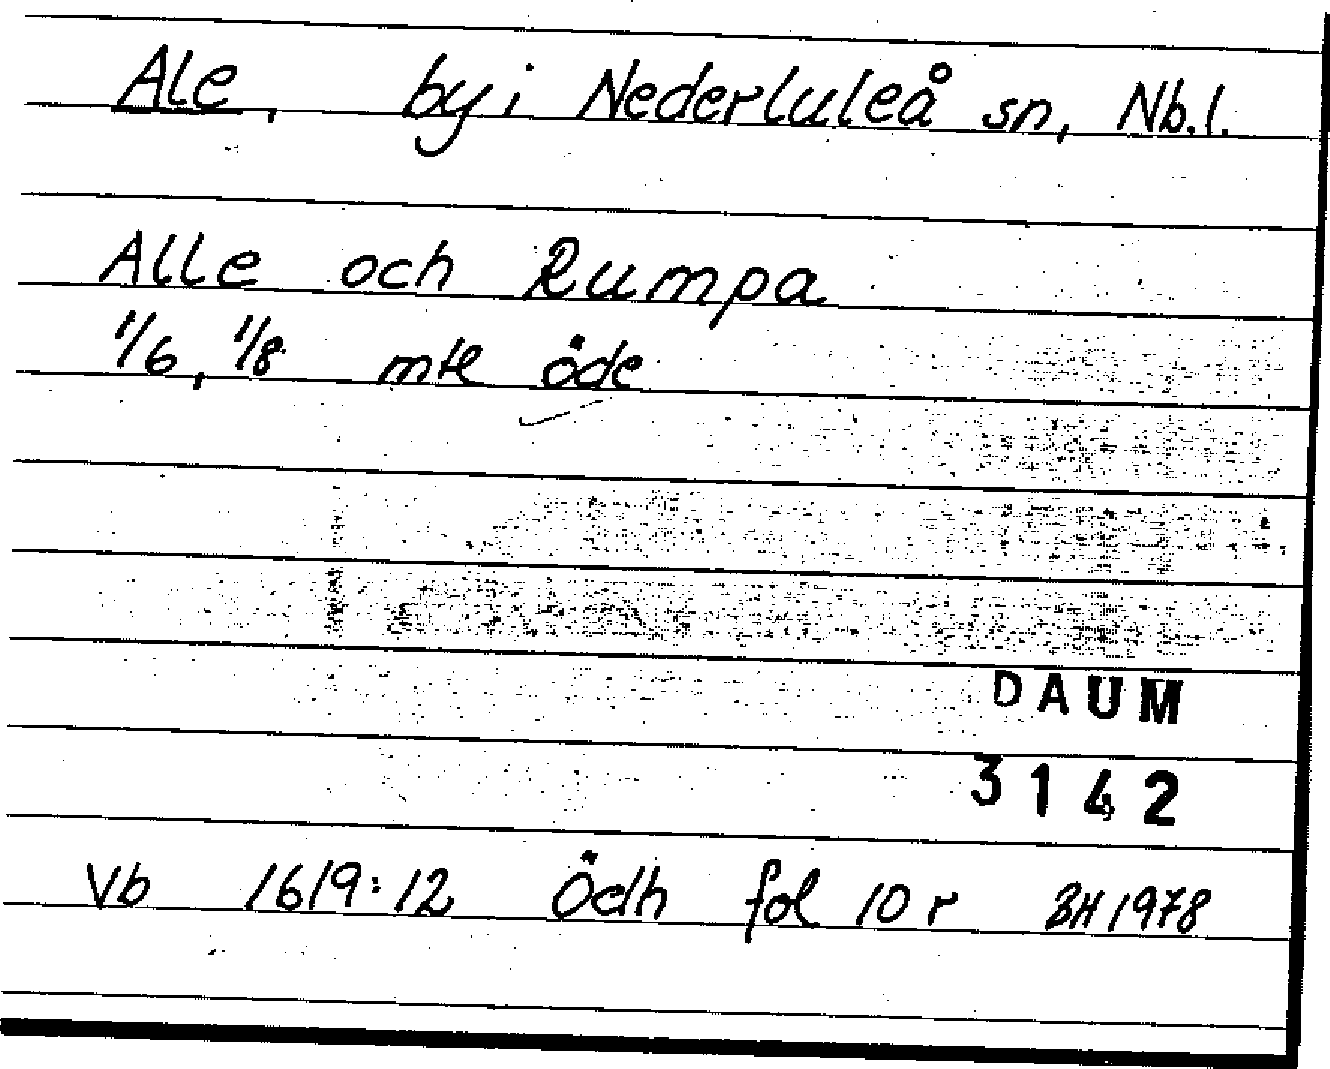 Ale, by i Nederluleå sn, Nb.l.
Alle och Rumpa
1/6, 1/8 mtl öde
DAUM
3142
Vb 1619:12 Ödh fol 10 r BH 1978